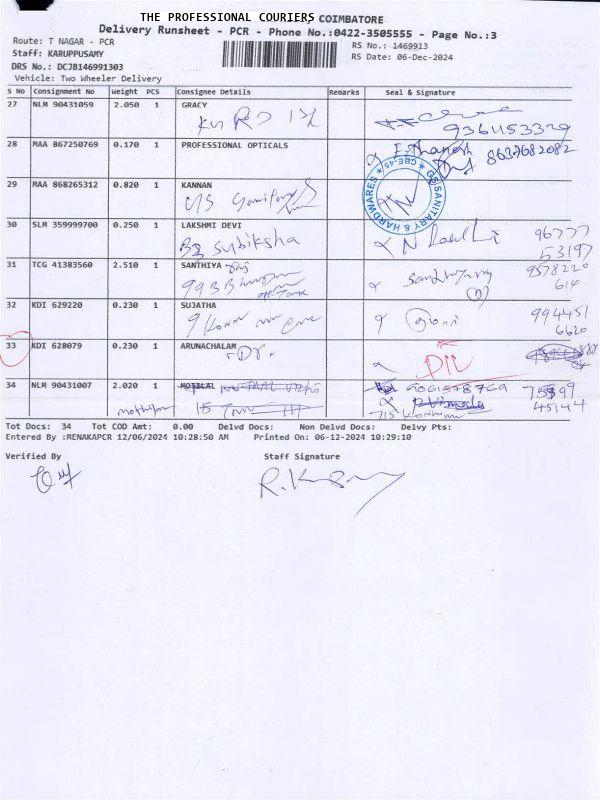 THE PROFESSIONAL COURIERS COIMBATORE
Delivery Runsheet - PCR - Phone No.:0422-3505555 - Page No.:3
Route: T NAGAR - PCR
RS No.: 1469913
Staff: KARUPPUSAMY
RS Date: 06-Dec-2024
DRS No.: DCJB146991303
Vehicle: Two Wheeler Delivery
S No Consignment No Weight PCS Consignee Details Remarks Seal & Signature
27 NLM 90431059 2.050 1 GRACY
9361153329
28 MAA 867250769 0.170 1 PROFESSIONAL OPTICALS
8637682082
29 MAA 868265312 0.820 1 KANNAN
GS SANITARY & HARDWARES CBE-45
30 SLM 359999700 0.250 1 LAKSHMI DEVI
B3 Subiksha
96777
53197
31 TCG 41383560 2.510 1 SANTHIYA
99 B
9578220
614
32 KDI 629220 0.230 1 SUJATHA
994451
6620
33 KDI 628079 0.230 1 ARUNACHALAM
DIL
34 NLM 90431007 2.020 1 MOTILAL
75399
45144
Tot Docs: 34 Tot COD Amt: 0.00 Delvd Docs: Non Delvd Docs: Delvy Pts:
Entered By :MENAKAPCR 12/06/2024 10:28:50 AM Printed On: 06-12-2024 10:29:10
Verified By Staff Signature